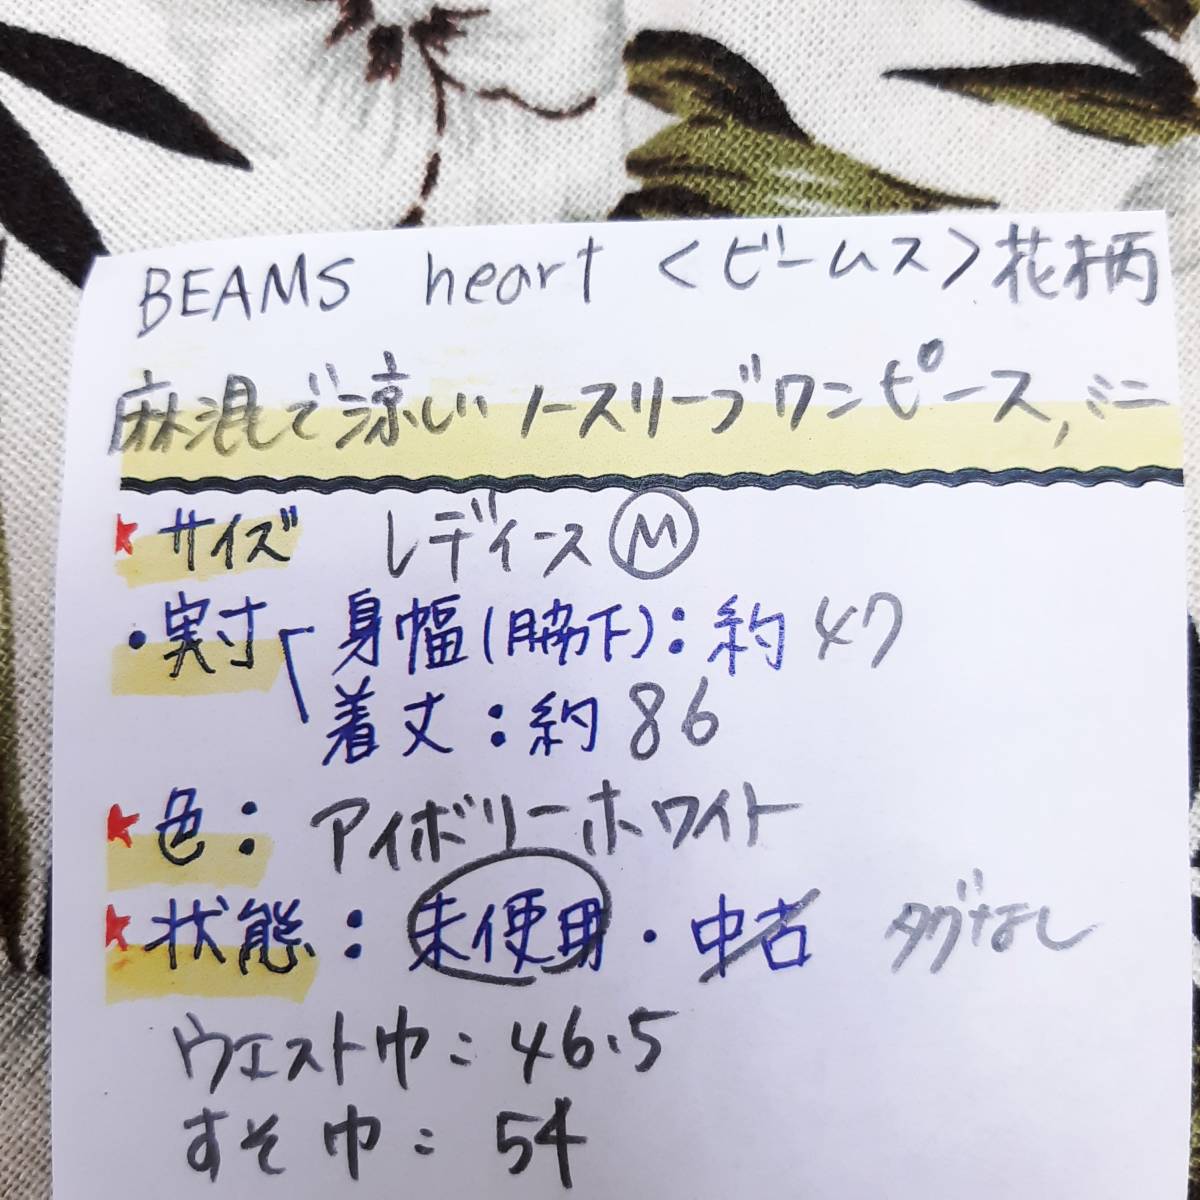 BEAMS heart <ビームス>花柄
麻混で涼しいノースリーブワンピース,ミニ
★サイズ レディースⓂ
・実寸 身幅(脇下):約47
着丈:約86
★色:アイボリーホワイト
★状態:未使用・中古 タグなし
ウエスト巾:46.5
すそ巾:54